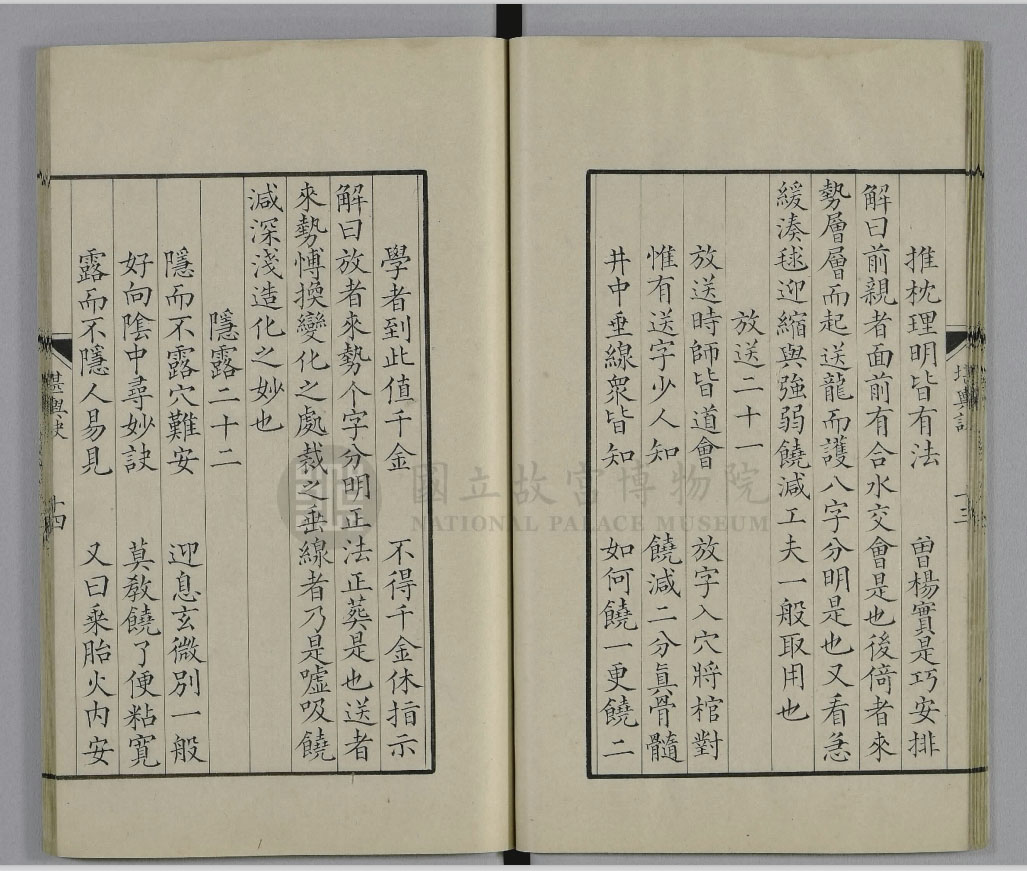 推枕理明皆有法　曽楊實是巧安排
解曰前親者面前有合水交會是也後倚者來
勢層層而起送龍而護八字分明是也又看急
緩湊毬迎縮與強弱饒減工夫一般取用也
放送二十一
放送時師皆道會　放字入穴將棺對
惟有送字少人知　饒減二分眞骨髓
井中垂線衆皆知　如何饒一更饒二
學者到此值千金　不得千金休指示
解曰放者來勢个字分明正法正葬是也送者
來勢愽換變化之處裁之垂線者乃是噓吸饒
減深淺造化之妙也
隱露二十二
隱而不露穴難安　迎息玄微別一般
好向陰中尋妙訣　莫教饒了便粘寬
露而不隱人易見　又曰乘胎火内安
堪輿訣　十四
國立故宮博物院
NATIONAL PALACE MUSEUM